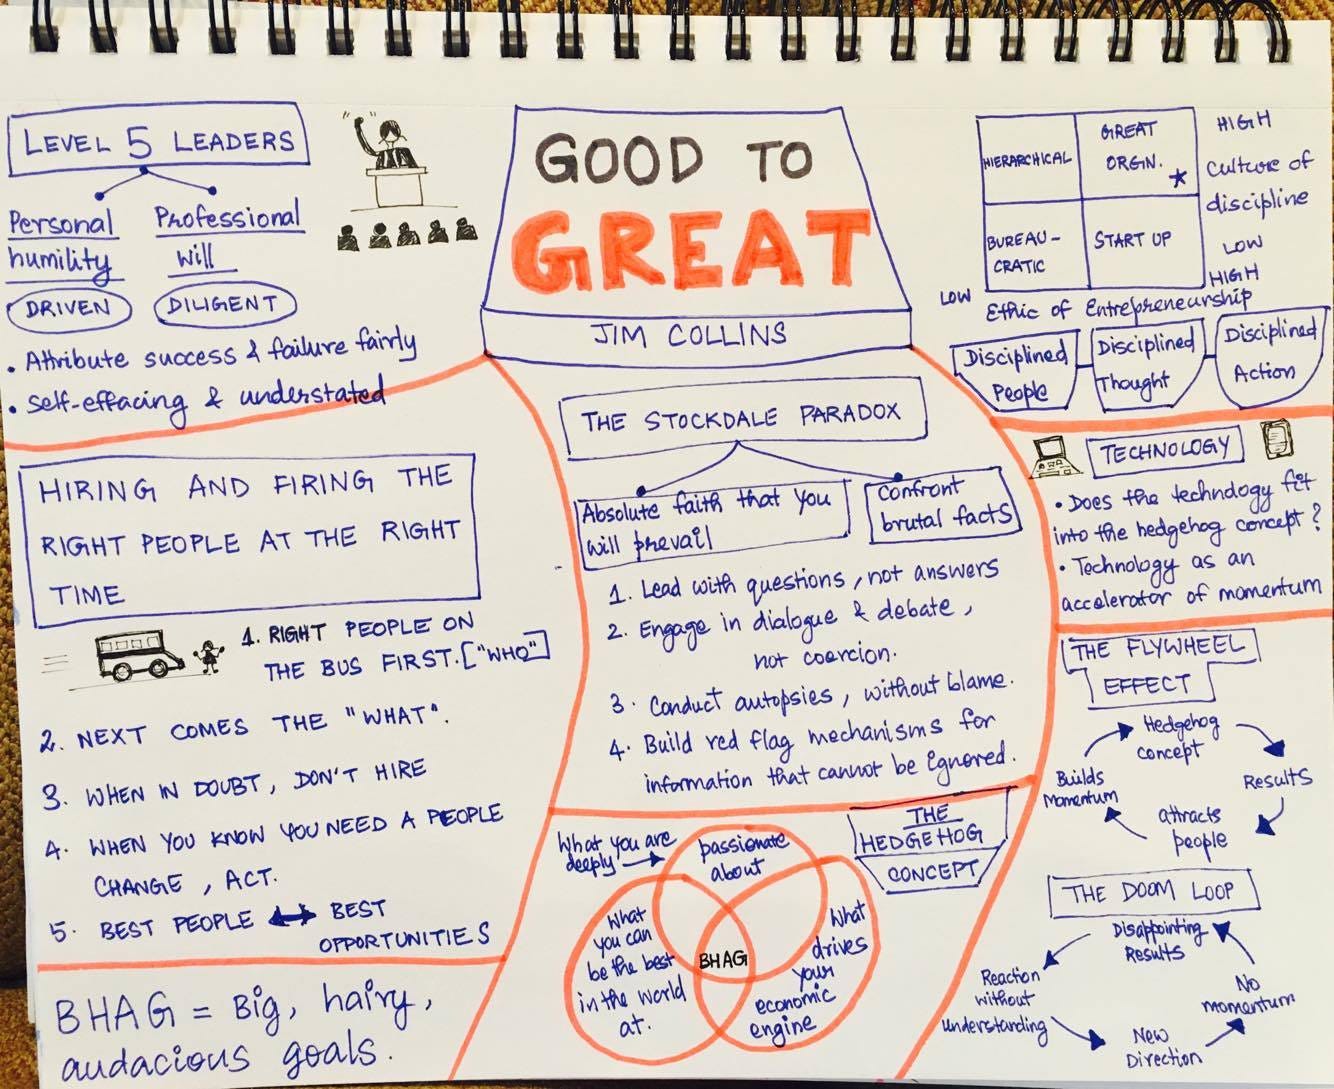 LEVEL 5 LEADERS
Personal
humility
Professional
will
DRIVEN
DILIGENT
• Attribute success & failure fairly
• self-effacing & understated
GOOD TO
GREAT
JIM COLLINS
HIERARCHICAL
GREAT
ORGN.
BUREAU-
CRATIC
START UP
HIGH
Culture of
discipline
LOW
HIGH
LOW
Ethic of Entrepreneurship
Disciplined
People
Disciplined
Thought
Disciplined
Action
HIRING AND FIRING THE
RIGHT PEOPLE AT THE RIGHT
TIME
1. RIGHT PEOPLE ON
THE BUS FIRST. ["WHO"]
2. NEXT COMES THE "WHAT".
3. WHEN IN DOUBT, DON'T HIRE
4. WHEN YOU KNOW YOU NEED A PEOPLE
CHANGE, ACT.
5. BEST PEOPLE ↔ BEST
OPPORTUNITIES
BHAG = Big, hairy,
audacious goals.
THE STOCKDALE PARADOX
Absolute faith that you
will prevail
Confront
brutal facts
1. Lead with questions, not answers
2. Engage in dialogue & debate,
not coercion.
3. Conduct autopsies, without blame.
4. Build red flag mechanisms for
information that cannot be ignored.
THE
HEDGEHOG
CONCEPT
What you are
deeply →
passionate
about
What
you can
be the best
in the world
at.
BHAG
What
drives
your
economic
engine
TECHNOLOGY
• Does the technology fit
into the hedgehog concept?
• Technology as an
accelerator of momentum
THE FLYWHEEL
EFFECT
Hedgehog
concept
Results
attracts
people
Builds
Momentum
THE DOOM LOOP
Disappointing
Results
Reaction
without
understanding
New
Direction
No
momentum